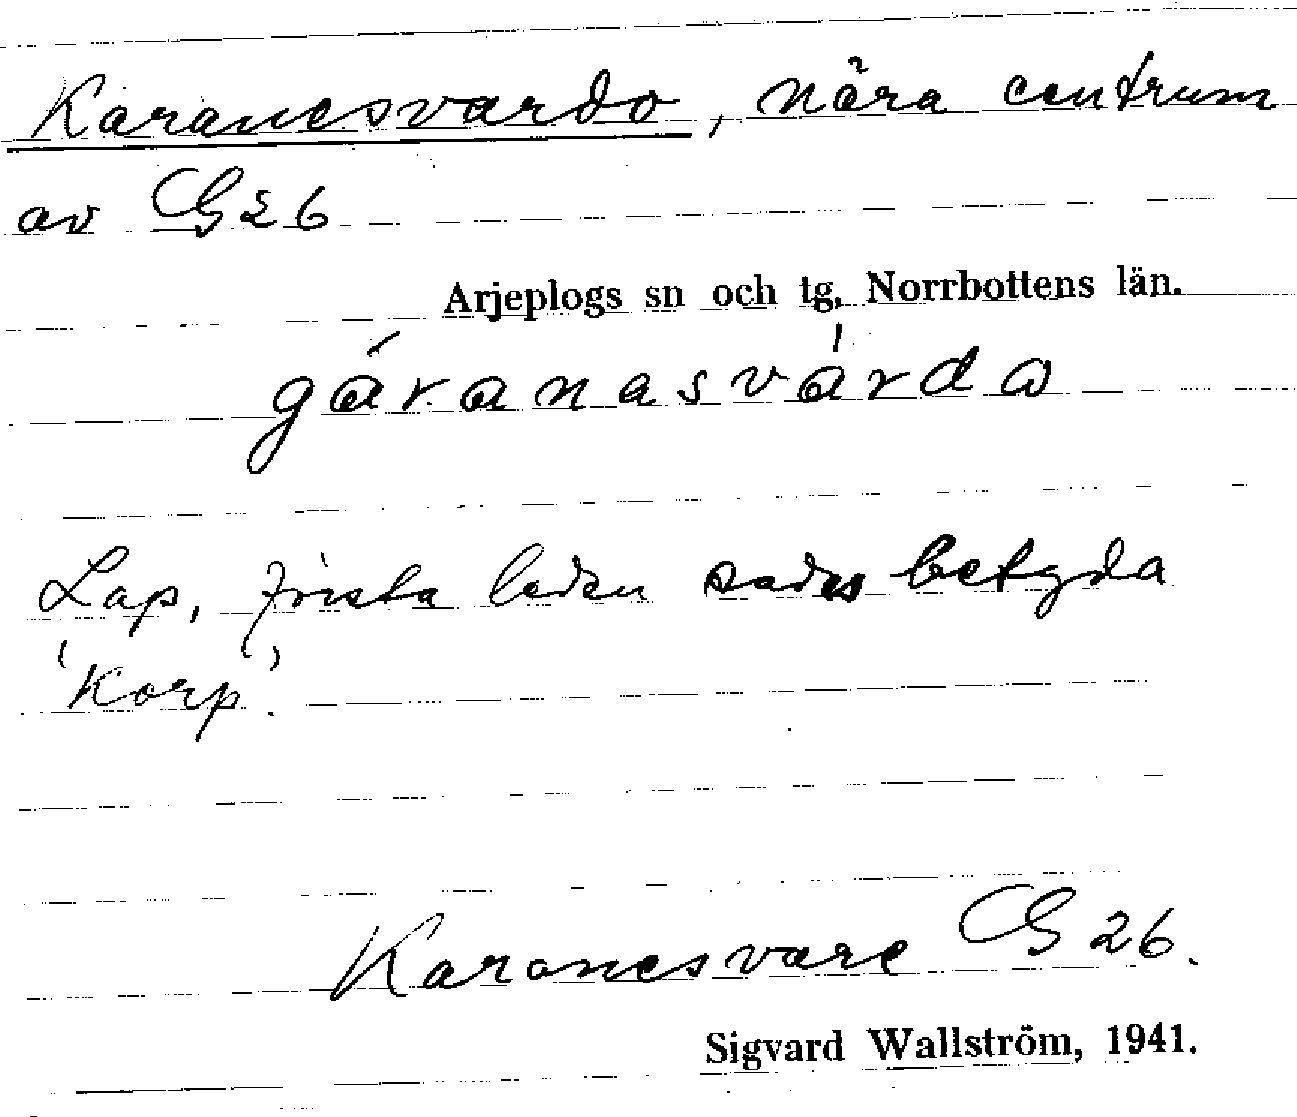 Karanesvardo, nära centrum
av G26
Arjeplogs sn och tg, Norrbottens län.
gáranasvárda
Lap, första leden sades betyda
'Korp'.
Karanesvare G 26.
Sigvard Wallström, 1941.